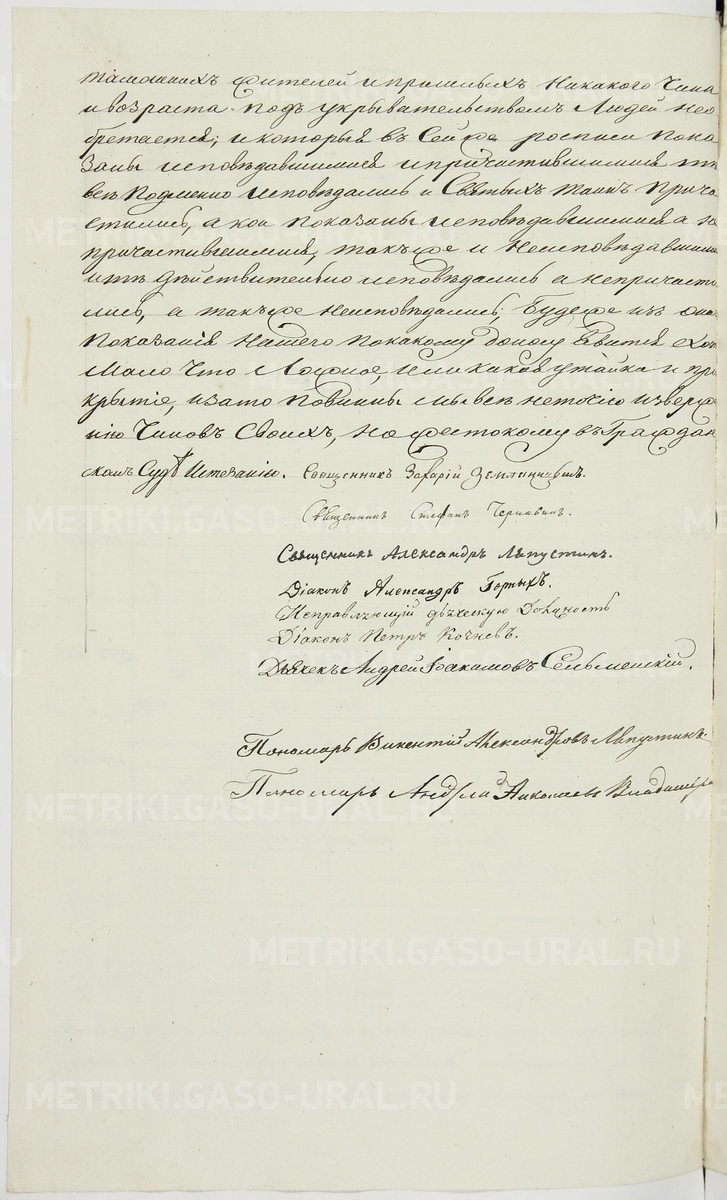 тамошнихъ жителей и пришлыхъ никакого чина
и возраста подъ укрывательствомъ людей не о
бретается; и которыя въ сей же росписи пока
заны исповѣдавшимися и причастившимися тѣ
всѣ подлинно исповѣдались и святыхъ таинъ прича
стились, а кои показаны исповѣдавшимися а не
причастившимися, такъже и неисповѣдавшими
и тѣ дѣйствительно исповѣдались а не причасти
лись, а такъже неисповѣдались; буде же изъ она
показанія нашего по какому доносу явится хотя
мало что ложное, или какая утайка и при
крытіе, и за то повинны мы всѣ не точію изверже
нію чиновъ своихъ, но жестокому въ граждан
скомъ судѣ истязанію. Священникъ Захарій Земляницынъ.
Священникъ Стефанъ Чернавинъ.
Священникъ Александръ Лѣпустинъ.
Діаконъ Александръ Горныхъ.
Исправляющій дьческую должность
Діаконъ Петръ Кочневъ.
Дьячекъ Андрей Іоакимовъ Сельменскій.
Пономарь Викентій Александровъ Лѣпустинъ
Пономарь Андрей Николаевъ
METRIKI.GASO-URAL.RU
METRIKI.GASO-URAL.RU
METRIKI.GASO-URAL.RU
METRIKI.GASO-URAL.RU
METRIKI.GASO-URAL.RU